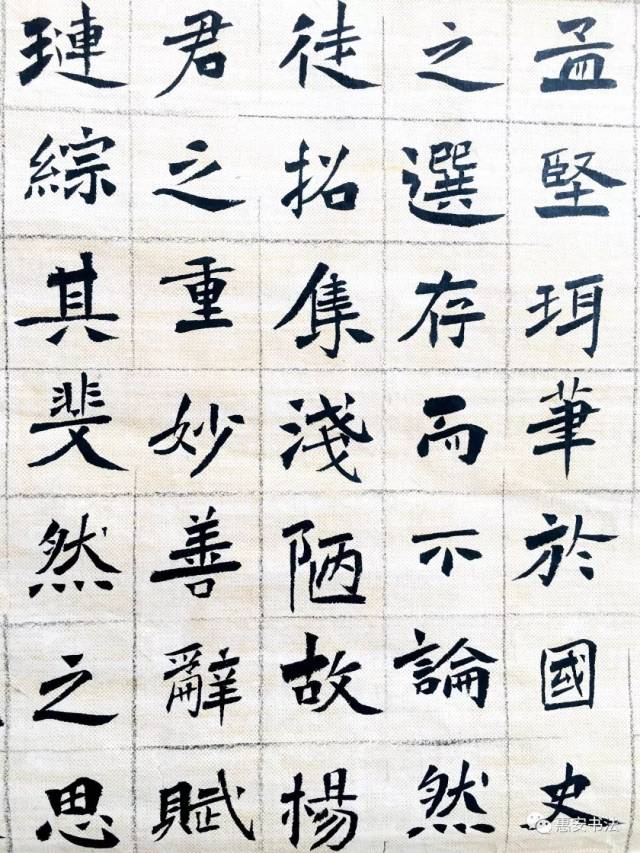 孟堅珥筆於國史
之選存而不論然
徒招集淺陋故楊
君之重妙善辭賦
璉綜其斐然之思
惠安书法